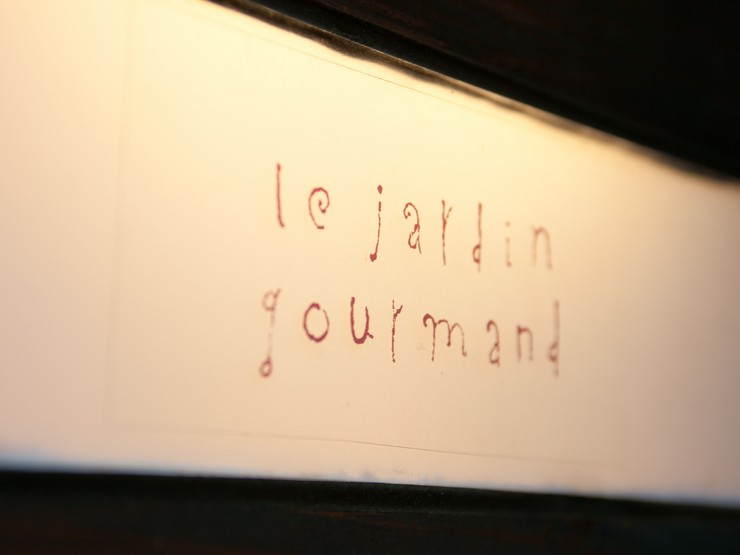 le jardin
gourmand